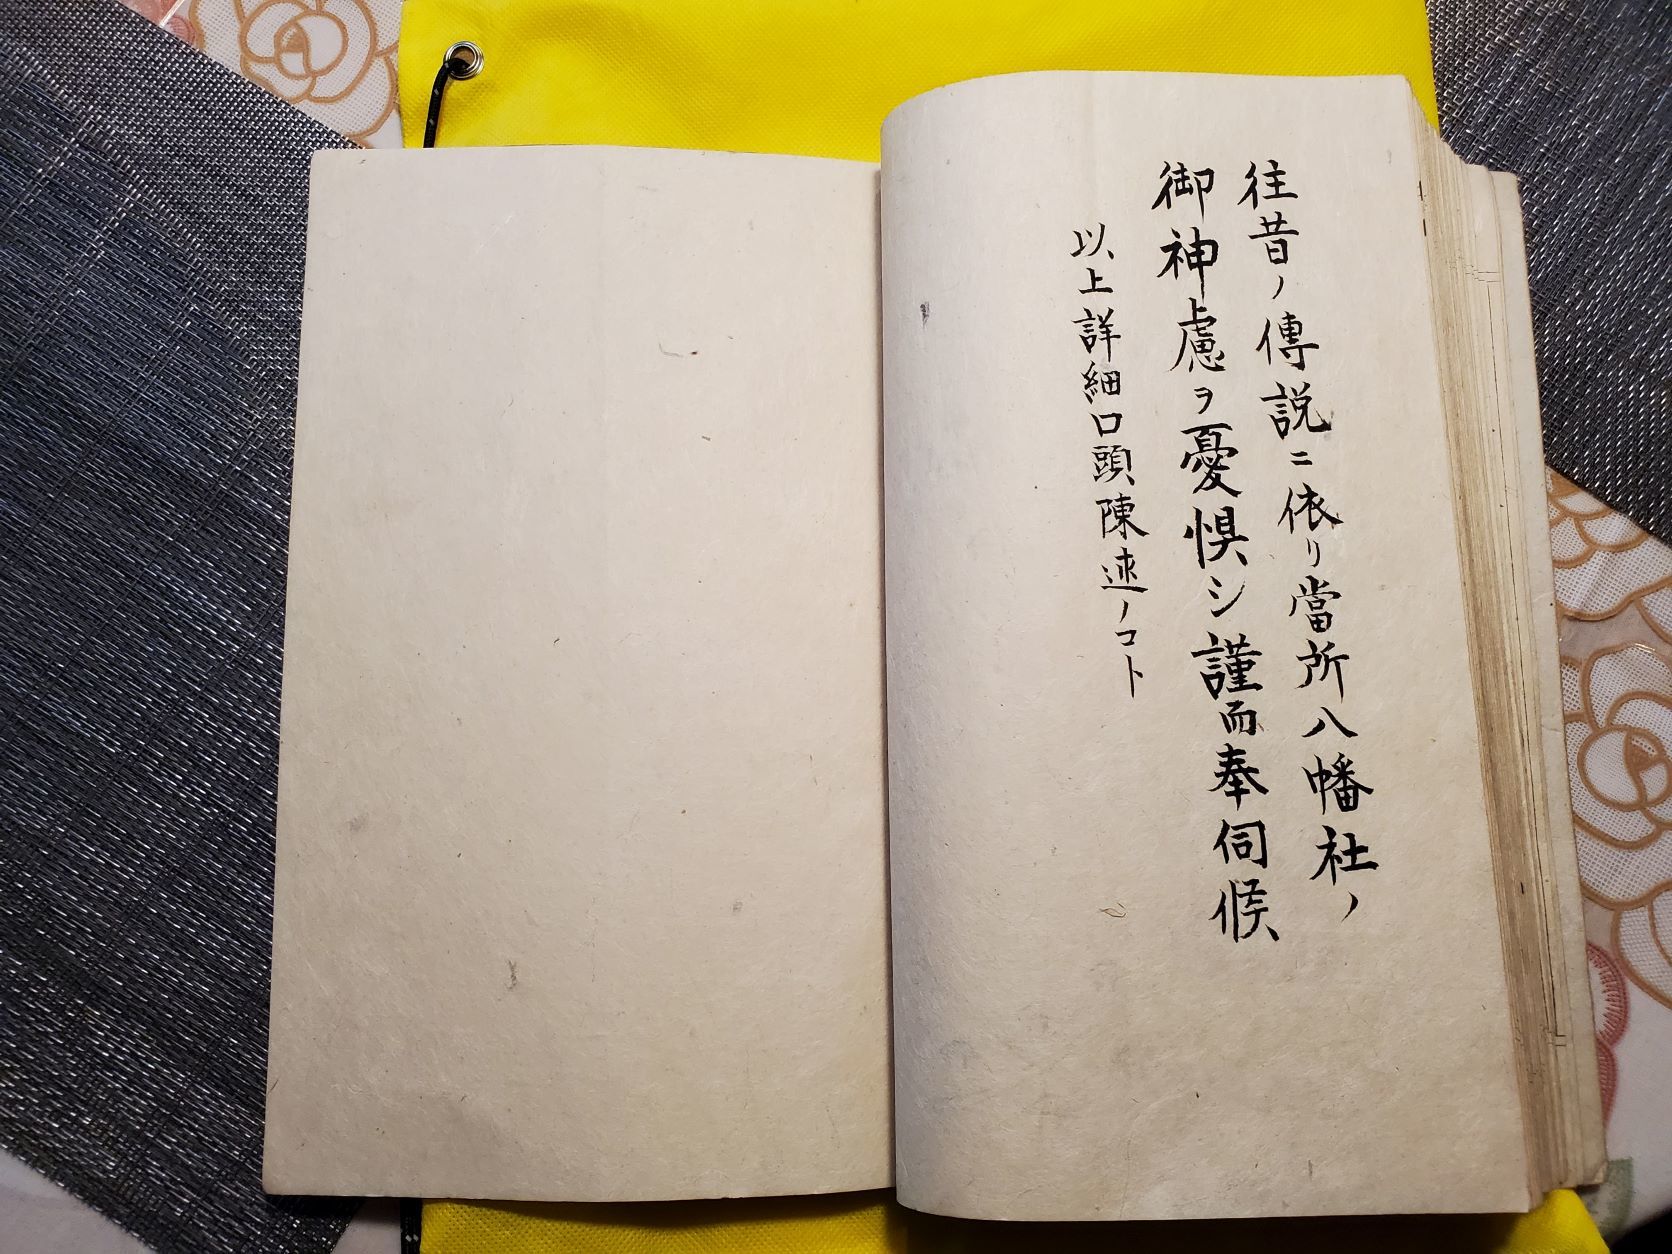 往昔ノ傳説ニ依リ當所八幡社ノ
御神慮ヲ憂惧シ謹而奉伺候
以上詳細口頭陳述ノコト